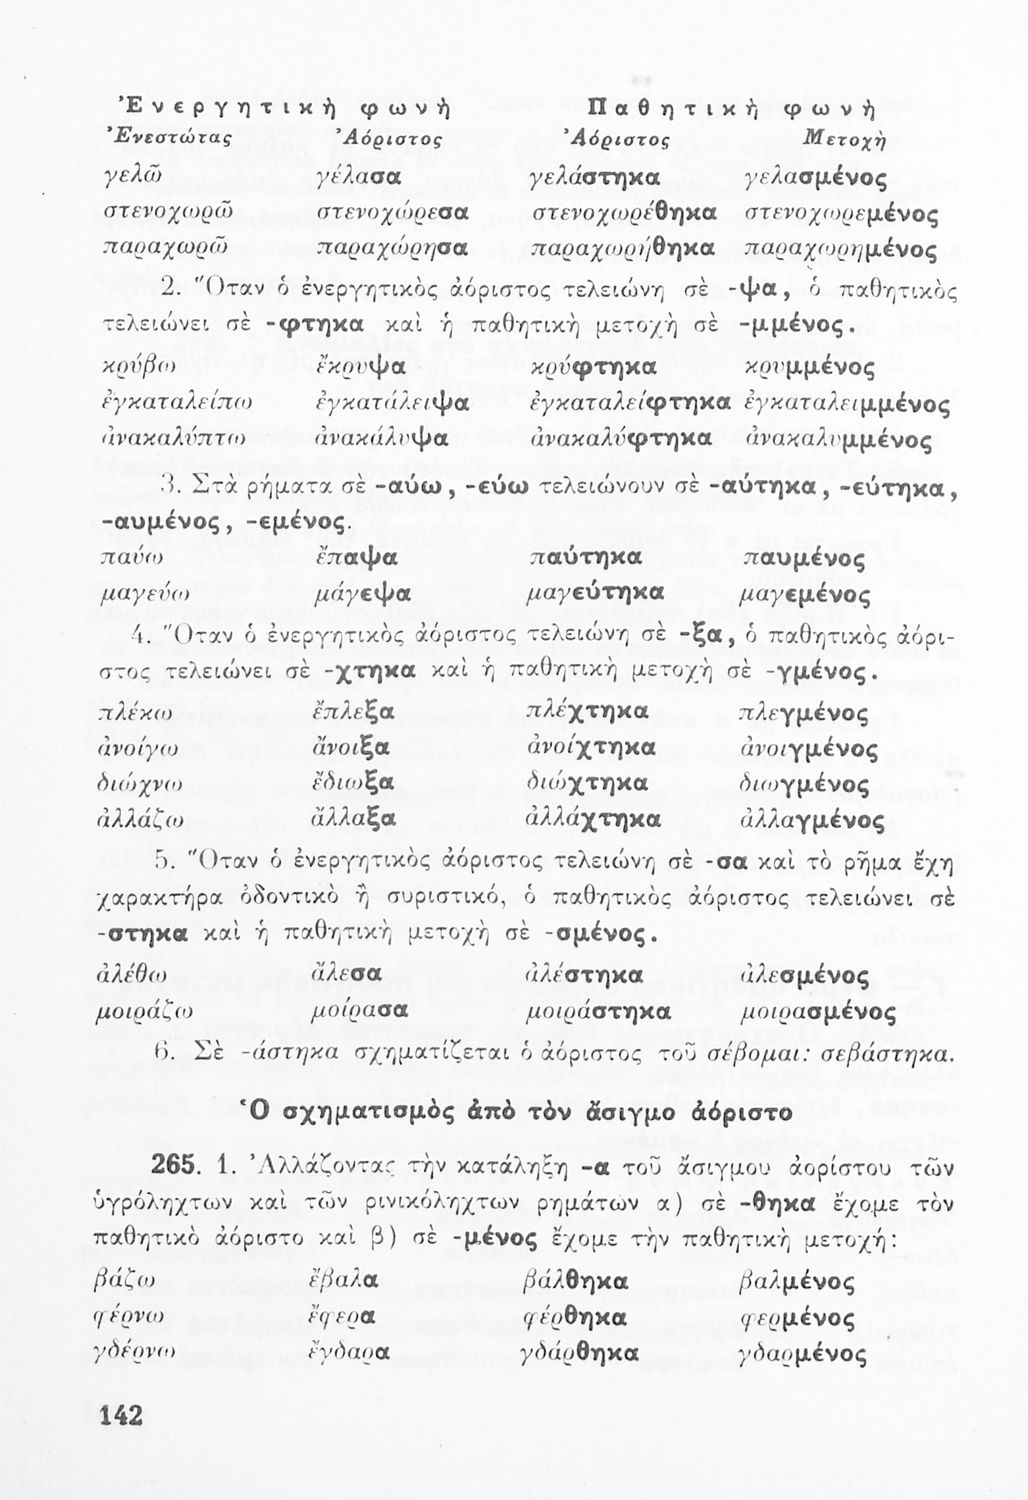 Ἐνεργητικὴ φωνὴ Παθητικὴ φωνὴ
Ἐνεστώτας Ἀόριστος Ἀόριστος Μετοχὴ
γελῶ γέλασα γελάστηκα γελασμένος
στενοχωρῶ στενοχώρεσα στενοχωρέθηκα στενοχωρεμένος
παραχωρῶ παραχώρησα παραχωρήθηκα παραχωρημένος
2. Ὅταν ὁ ἐνεργητικὸς ἀόριστος τελειώνη σὲ -ψα, ὁ παθητικὸς
τελειώνει σὲ -φτηκα καὶ ἡ παθητικὴ μετοχὴ σὲ -μμένος.
κρύβω ἔκρυψα κρύφτηκα κρυμμένος
ἐγκαταλείπω ἐγκατάλειψα ἐγκαταλείφτηκα ἐγκαταλειμμένος
ἀνακαλύπτω ἀνακάλυψα ἀνακαλύφτηκα ἀνακαλυμμένος
3. Στὰ ρήματα σὲ -αύω, -εύω τελειώνουν σὲ -αύτηκα, -εύτηκα,
-αυμένος, -εμένος.
παύω ἔπαψα παύτηκα παυμένος
μαγεύω μάγεψα μαγεύτηκα μαγεμένος
4. Ὅταν ὁ ἐνεργητικὸς ἀόριστος τελειώνη σὲ -ξα, ὁ παθητικὸς ἀόρι-
στος τελειώνει σὲ -χτηκα καὶ ἡ παθητικὴ μετοχὴ σὲ -γμένος.
πλέκω ἔπλεξα πλέχτηκα πλεγμένος
ἀνοίγω ἄνοιξα ἀνοίχτηκα ἀνοιγμένος
διώχνω ἔδιωξα διώχτηκα διωγμένος
ἀλλάζω ἄλλαξα ἀλλάχτηκα ἀλλαγμένος
5. Ὅταν ὁ ἐνεργητικὸς ἀόριστος τελειώνη σὲ -σα καὶ τὸ ρῆμα ἔχη
χαρακτήρα ὀδοντικὸ ἢ συριστικό, ὁ παθητικὸς ἀόριστος τελειώνει σὲ
-στηκα καὶ ἡ παθητικὴ μετοχὴ σὲ -σμένος.
ἀλέθω ἄλεσα ἀλέστηκα ἀλεσμένος
μοιράζω μοίρασα μοιράστηκα μοιρασμένος
6. Σὲ -άστηκα σχηματίζεται ὁ ἀόριστος τοῦ σέβομαι: σεβάστηκα.
Ὁ σχηματισμὸς ἀπὸ τὸν ἄσιγμο ἀόριστο
265. 1. Ἀλλάζοντας τὴν κατάληξη -α τοῦ ἄσιγμου ἀορίστου τῶν
ὑγρόληχτων καὶ τῶν ρινικόληχτων ρημάτων α) σὲ -θηκα ἔχομε τὸν
παθητικὸ ἀόριστο καὶ β) σὲ -μένος ἔχομε τὴν παθητικὴ μετοχή:
βάζω ἔβαλα βάλθηκα βαλμένος
φέρνω ἔφερα φέρθηκα φερμένος
γδέρνω ἔγδαρα γδάρθηκα γδαρμένος
142